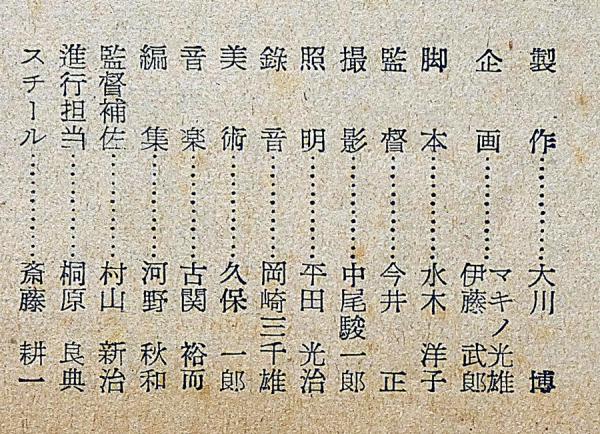 製作…………大川 博
企画…………マキノ光雄
伊藤 武郎
脚本…………水木 洋子
監督…………今井 正
撮影…………中尾駿一郎
照明…………平田 光治
録音…………岡崎三千雄
美術…………久保 一郎
音楽…………古関 裕而
編集…………河野 秋和
監督補佐…………村山 新治
進行担当…………桐原 良典
スチール…………斎藤 耕一